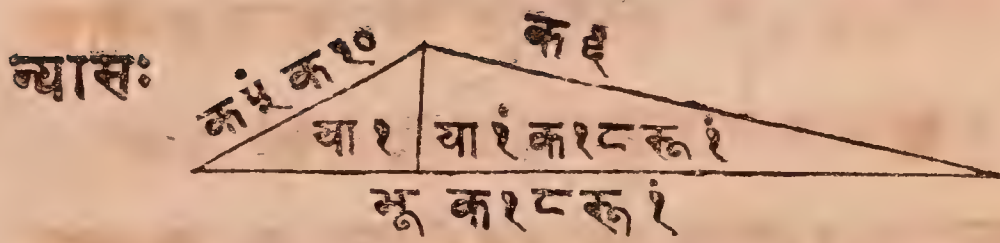 न्यासः
क५ं क१०
क६
या१
या१ं क१८ रू१ं
भू क१८ रू१ं